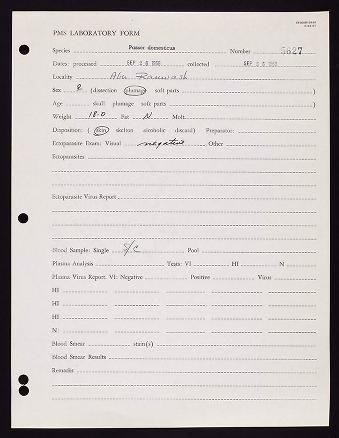 PMS LABORATORY FORM
Species Passer domesticus Number 5627
Dates: processed SEP 26 1966 collected SEP 26 1966
Locality Abu Rawash
Sex ♀ (dissection plumage soft parts )
Age skull plumage soft parts )
Weight 18.0 Fat N Molt
Disposition: ( skin skelton alcoholic discard) Preparator:
Ectoparasite Exam: Visual negative Other
Ectoparasites
Ectoparasite Virus Report
Blood Sample: Single S/C Pool
Plasma Analysis Tests: VI HI N
Plasma Virus Report. VI: Negative Positive Virus
HI
HI
HI
N:
Blood Smear stain(s)
Blood Smear Results
Remarks